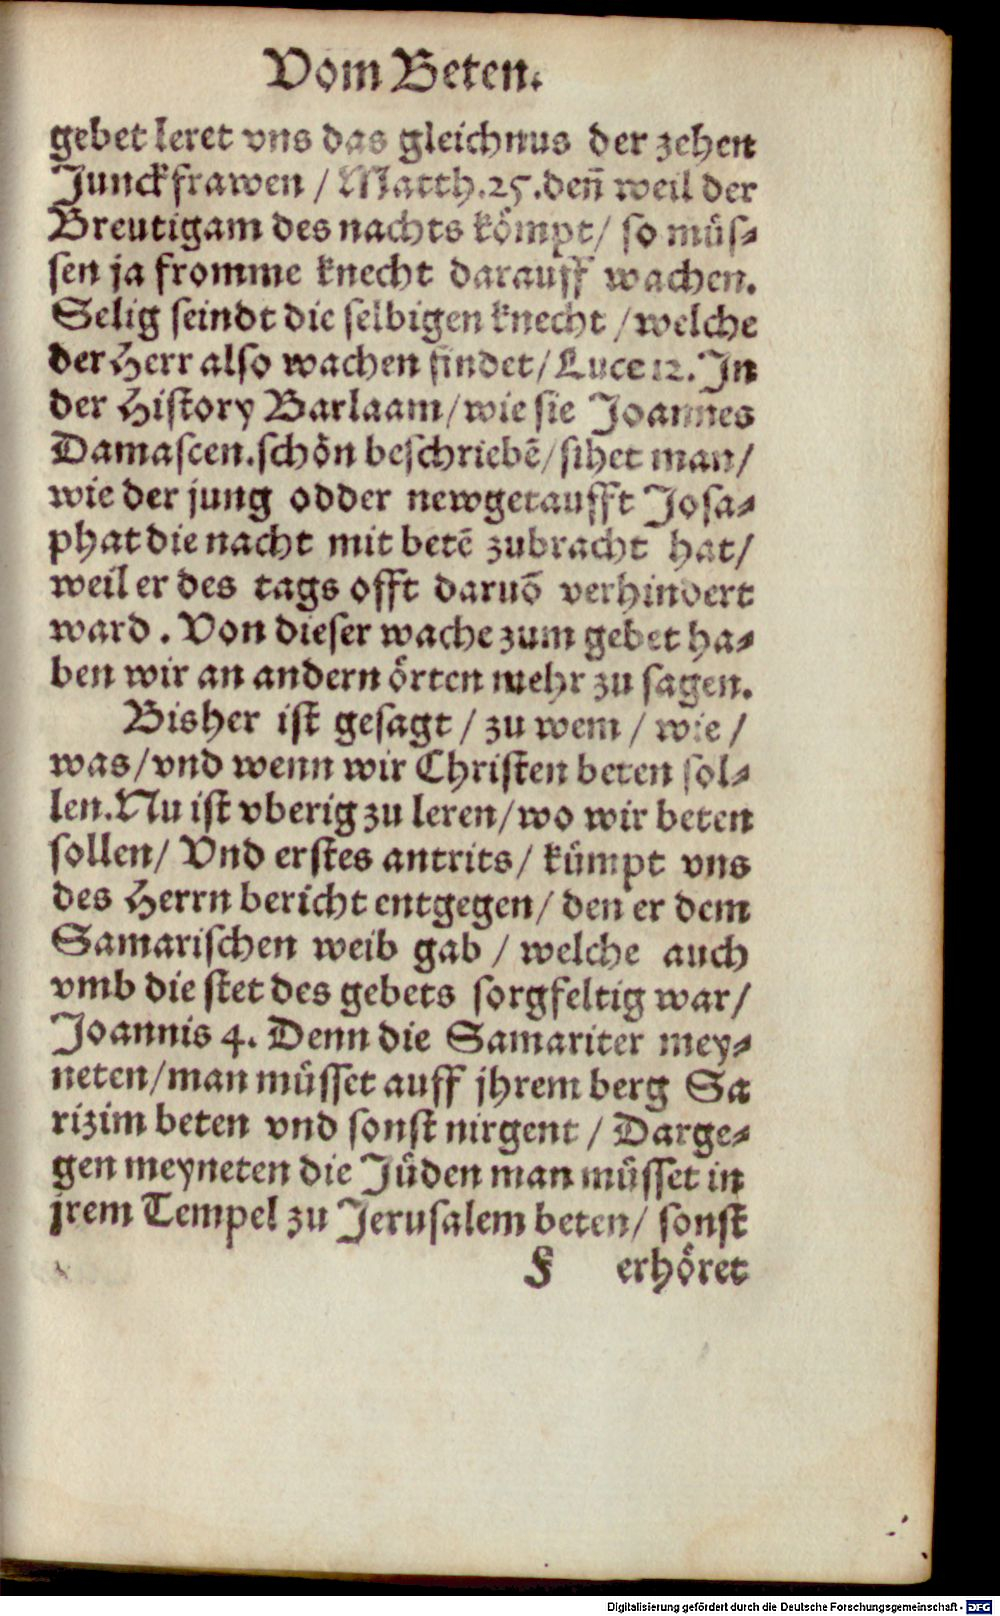 Vom Beten.
gebet leret vns das gleichnus der zehen
Junckfrawen / Matth.25.deñ weil der
Breutigam des nachts kömpt/ so müs-
sen ja fromme knecht darauff wachen.
Selig seindt die selbigen knecht /welche
der Herr also wachen findet/Luce 12. In
der History Barlaam/wie sie Joannes
Damascen.schön beschriebē/sihet man/
wie der jung odder newgetaufft Josa-
phat die nacht mit betē zubracht hat/
weil er des tags offt daruō verhindert
ward. Von dieser wache zum gebet ha-
ben wir an andern örten mehr zu sagen.
Bisher ist gesagt / zu wem / wie /
was/vnd wenn wir Christen beten sol-
len.Nu ist vberig zu leren/wo wir beten
sollen/ Vnd erstes antrits/ kümpt vns
des Herrn bericht entgegen/ den er dem
Samarischen weib gab / welche auch
vmb die stet des gebets sorgfeltig war/
Joannis 4. Denn die Samariter mey-
neten/man müsset auff jhrem berg Sa
rizim beten vnd sonst nirgent / Darge-
gen meyneten die Jüden man müsset in
jrem Tempel zu Jerusalem beten/ sonst
F erhöret
Digitalisierung gefördert durch die Deutsche Forschungsgemeinschaft - DFG